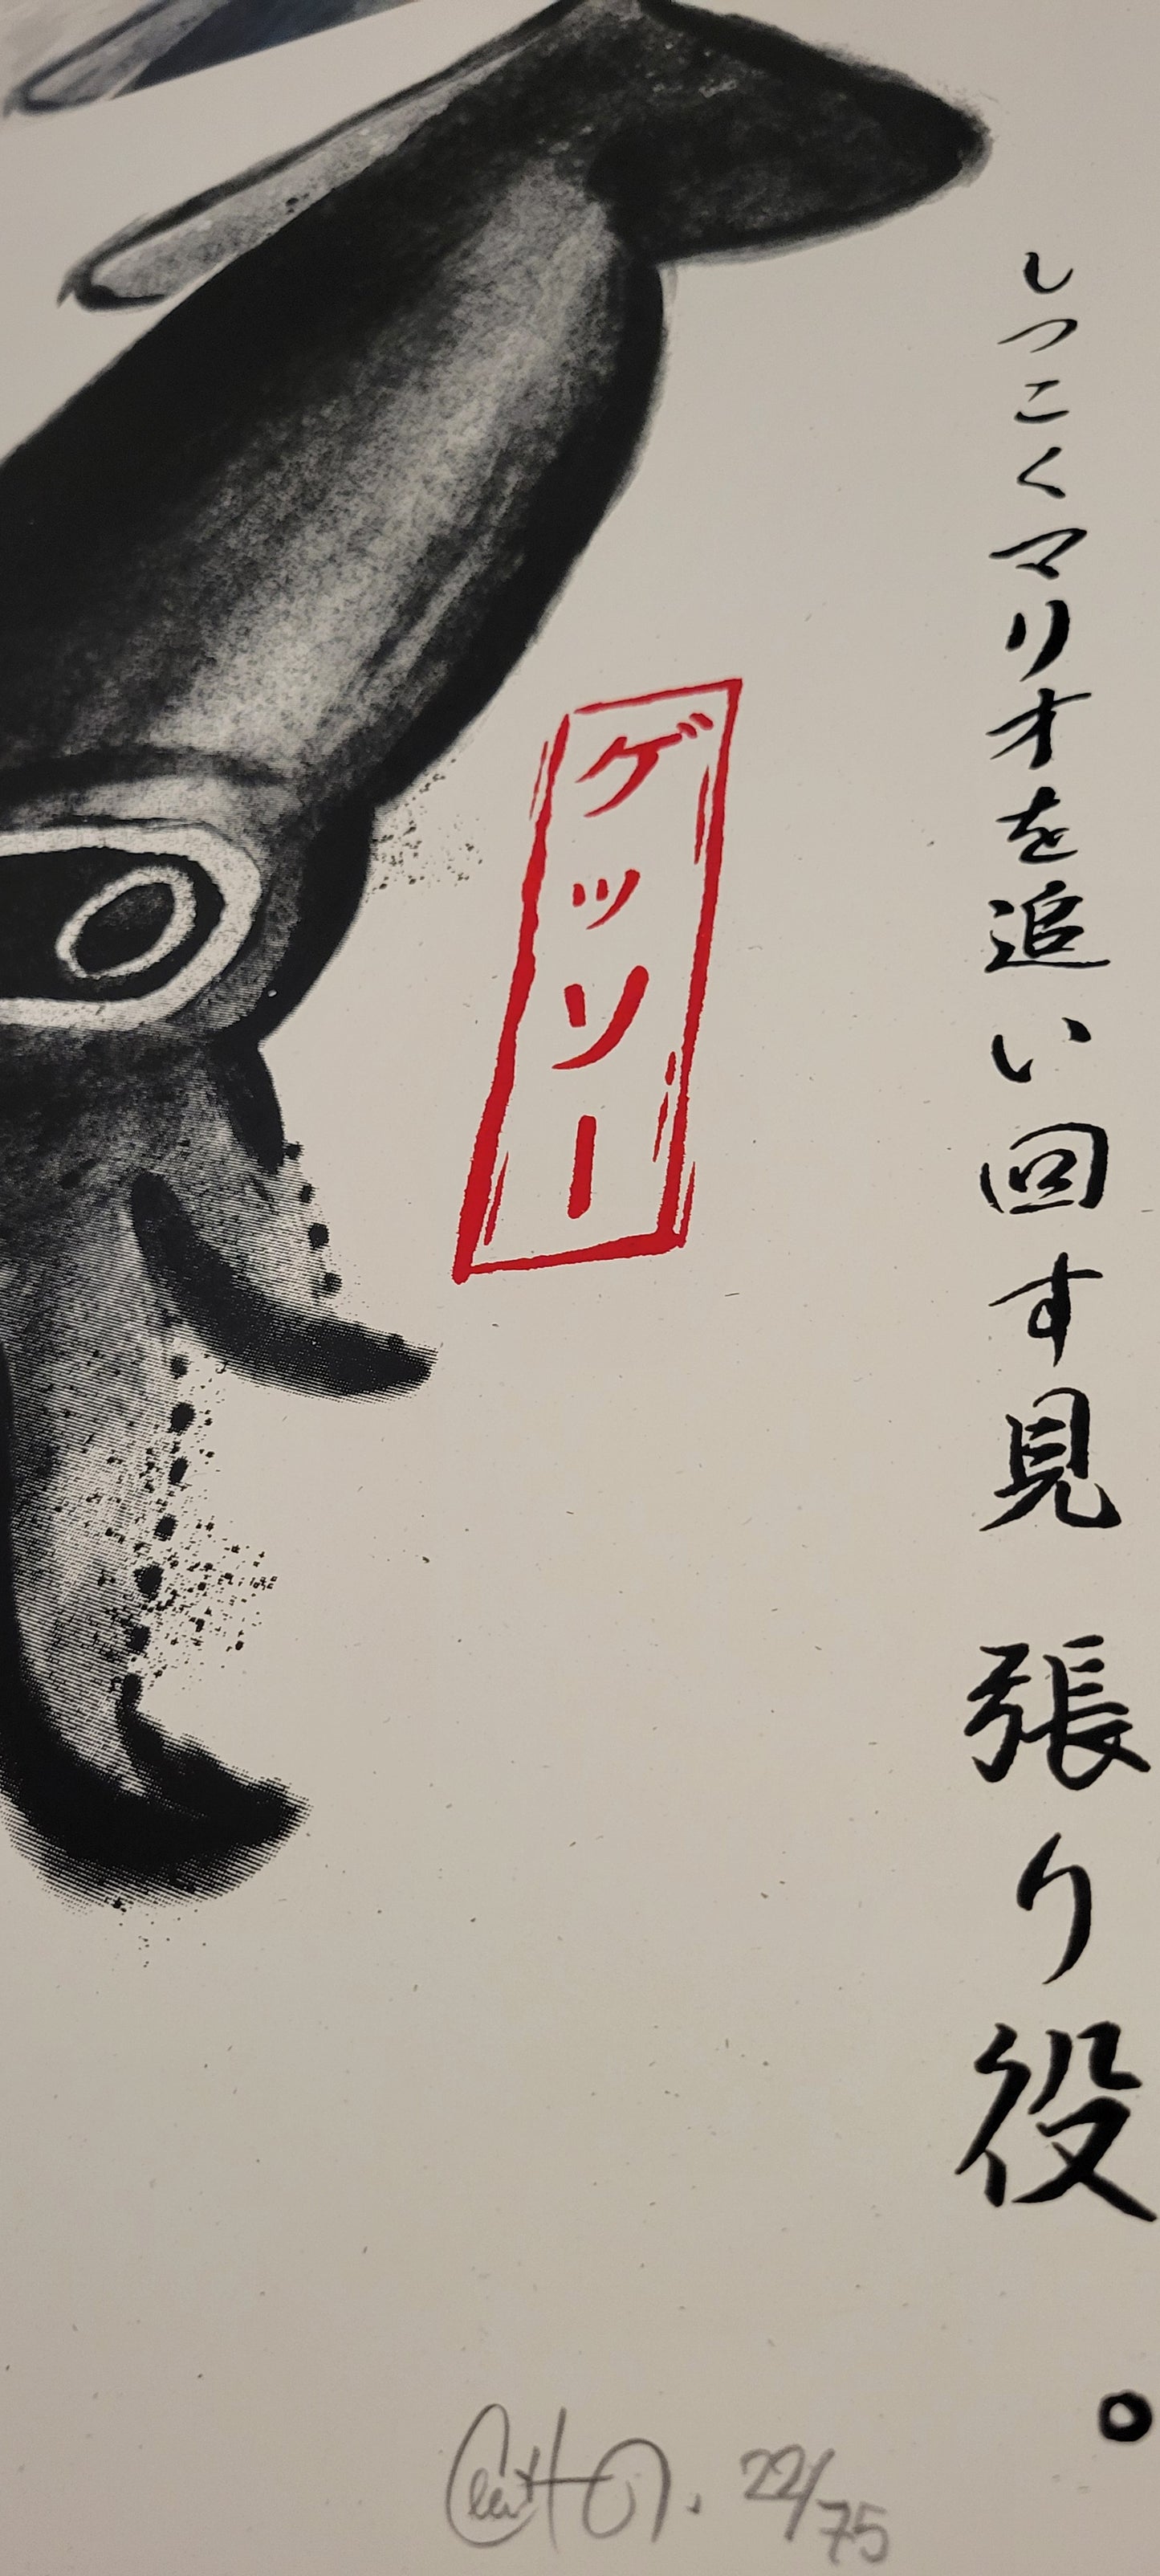 しつこくマリオを追い回す見張り役。
ゲッソー
22/75